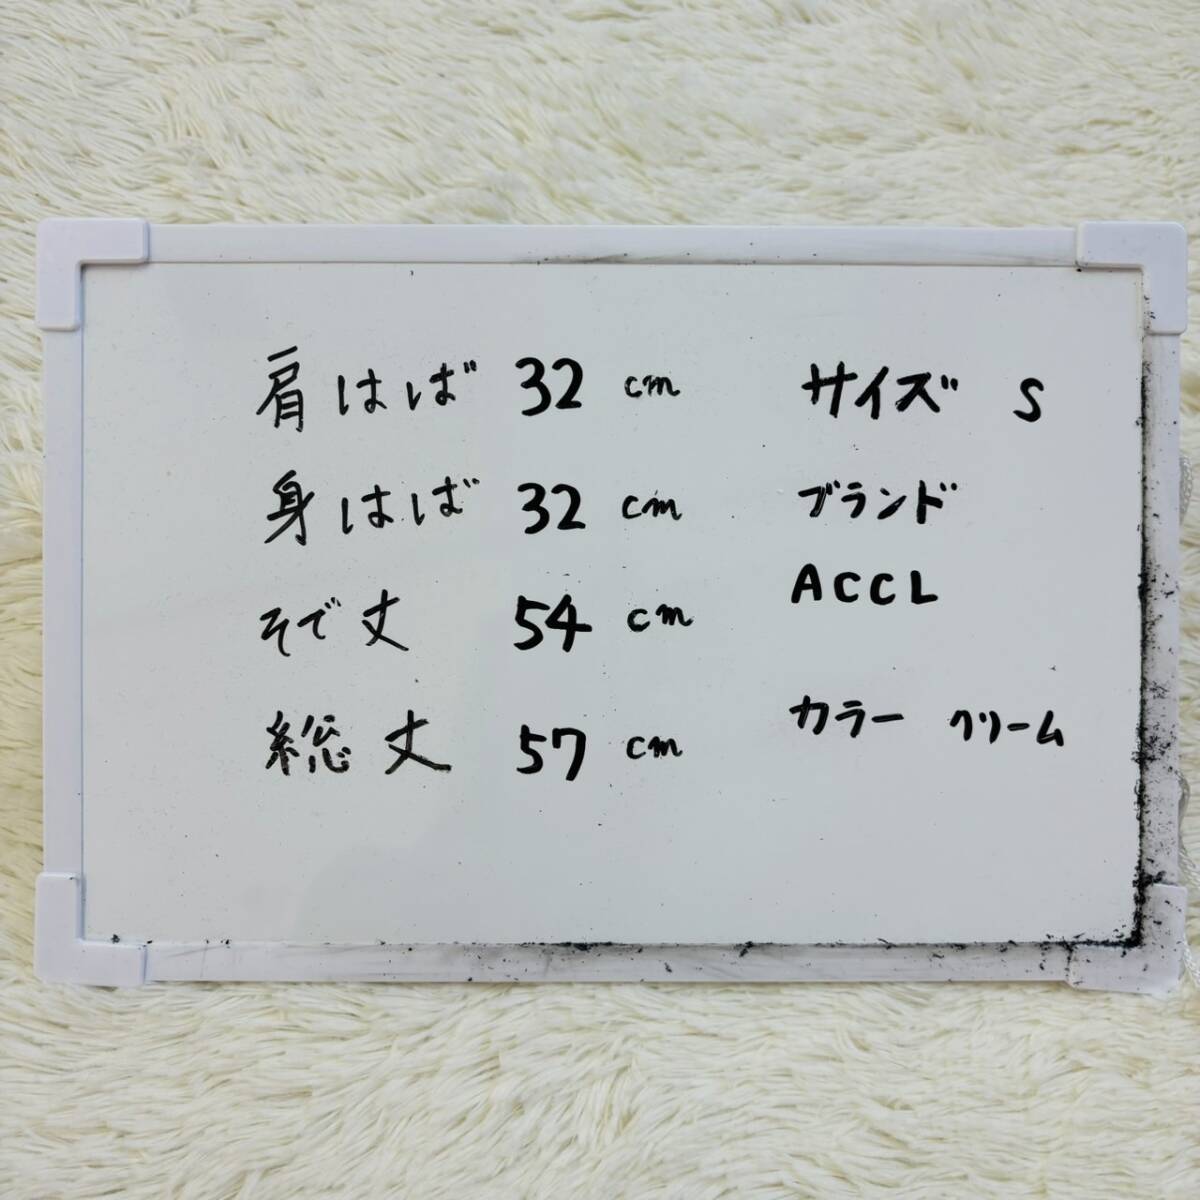 肩はば 32 cm
身はば 32 cm
そで丈 54 cm
総丈 57 cm
サイズ S
ブランド
ACCL
カラー クリーム